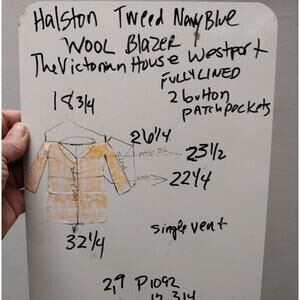 Halston Tweed Navy Blue
Wool Blazer
The Victorian House Westport
FULLY LINED
2 button
patch pockets
18 3/4
26 1/4
23 1/2
22 1/4
single vent
32 1/4
2,9 P1092